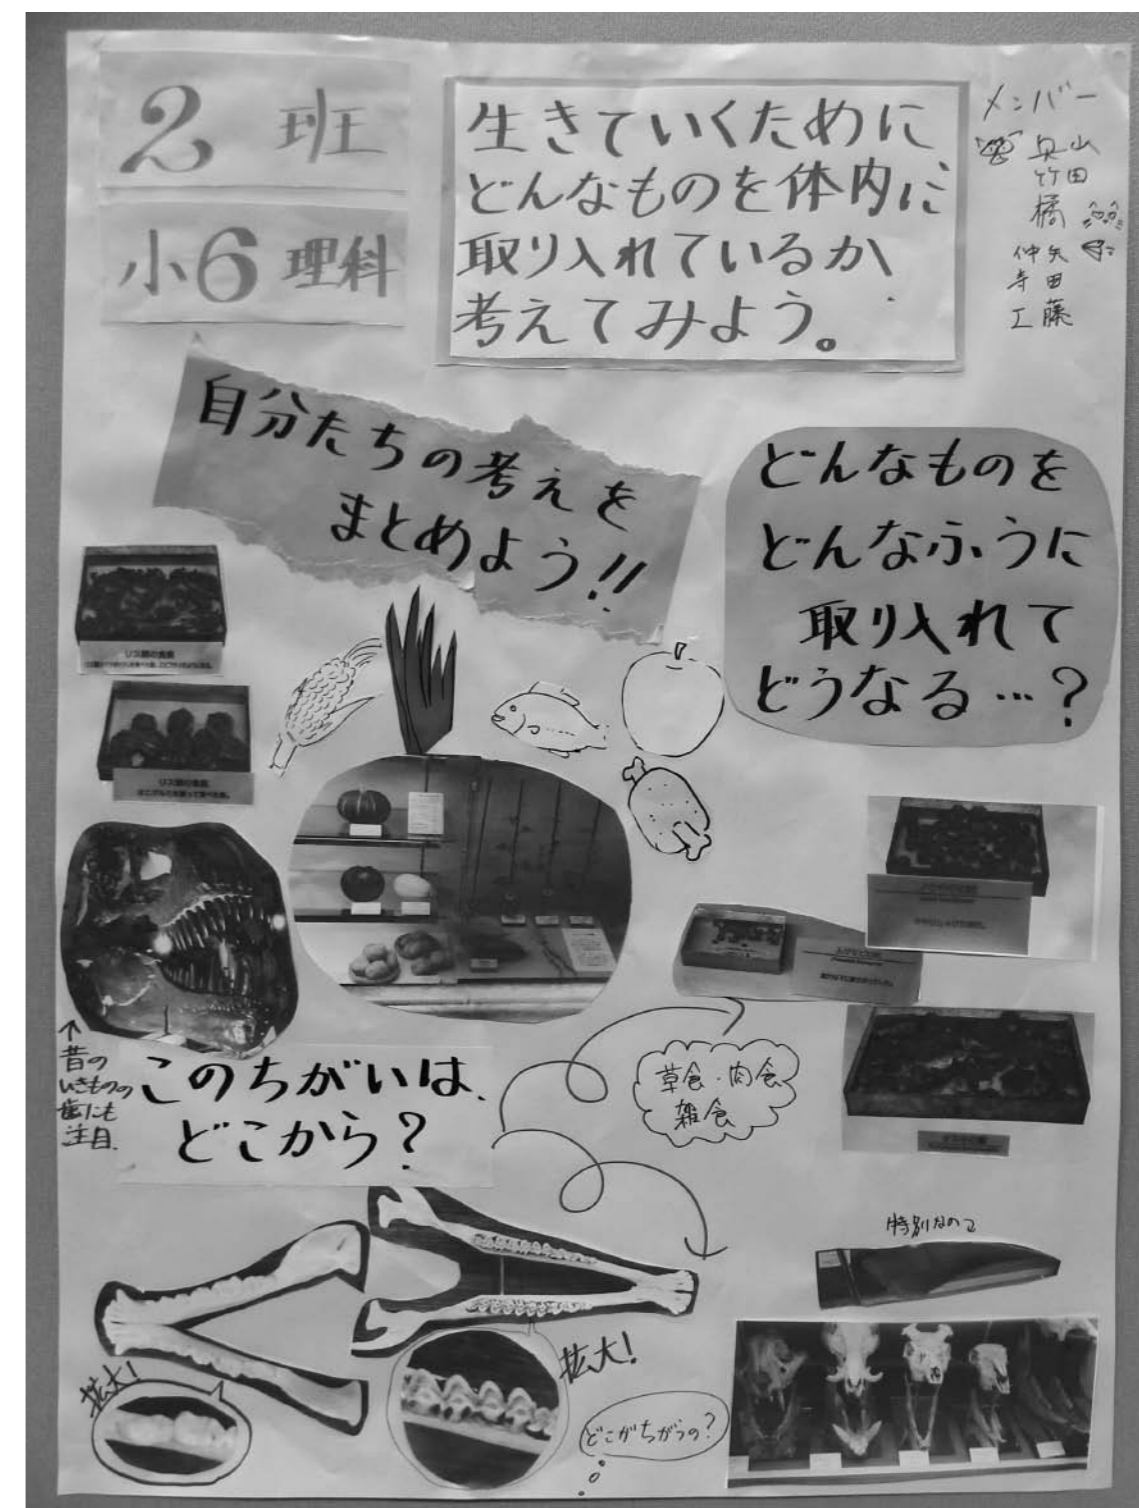 2 班
小6 理科
生きていくために、
どんなものを体内に
取り入れているか、
考えてみよう。
メンバー
奥山
竹田
橘
仲矢
寺田
工藤
自分たちの考えを
まとめよう!!
どんなものを
どんなふうに
取り入れて
どうなる…?
リス類の食痕
リス類の食痕
↑
昔の
いきものの
歯にも
注目.
このちがいは、
どこから?
草食・肉食
雑食
特別なのコ
拡大!
拡大!
どこがちがうの?